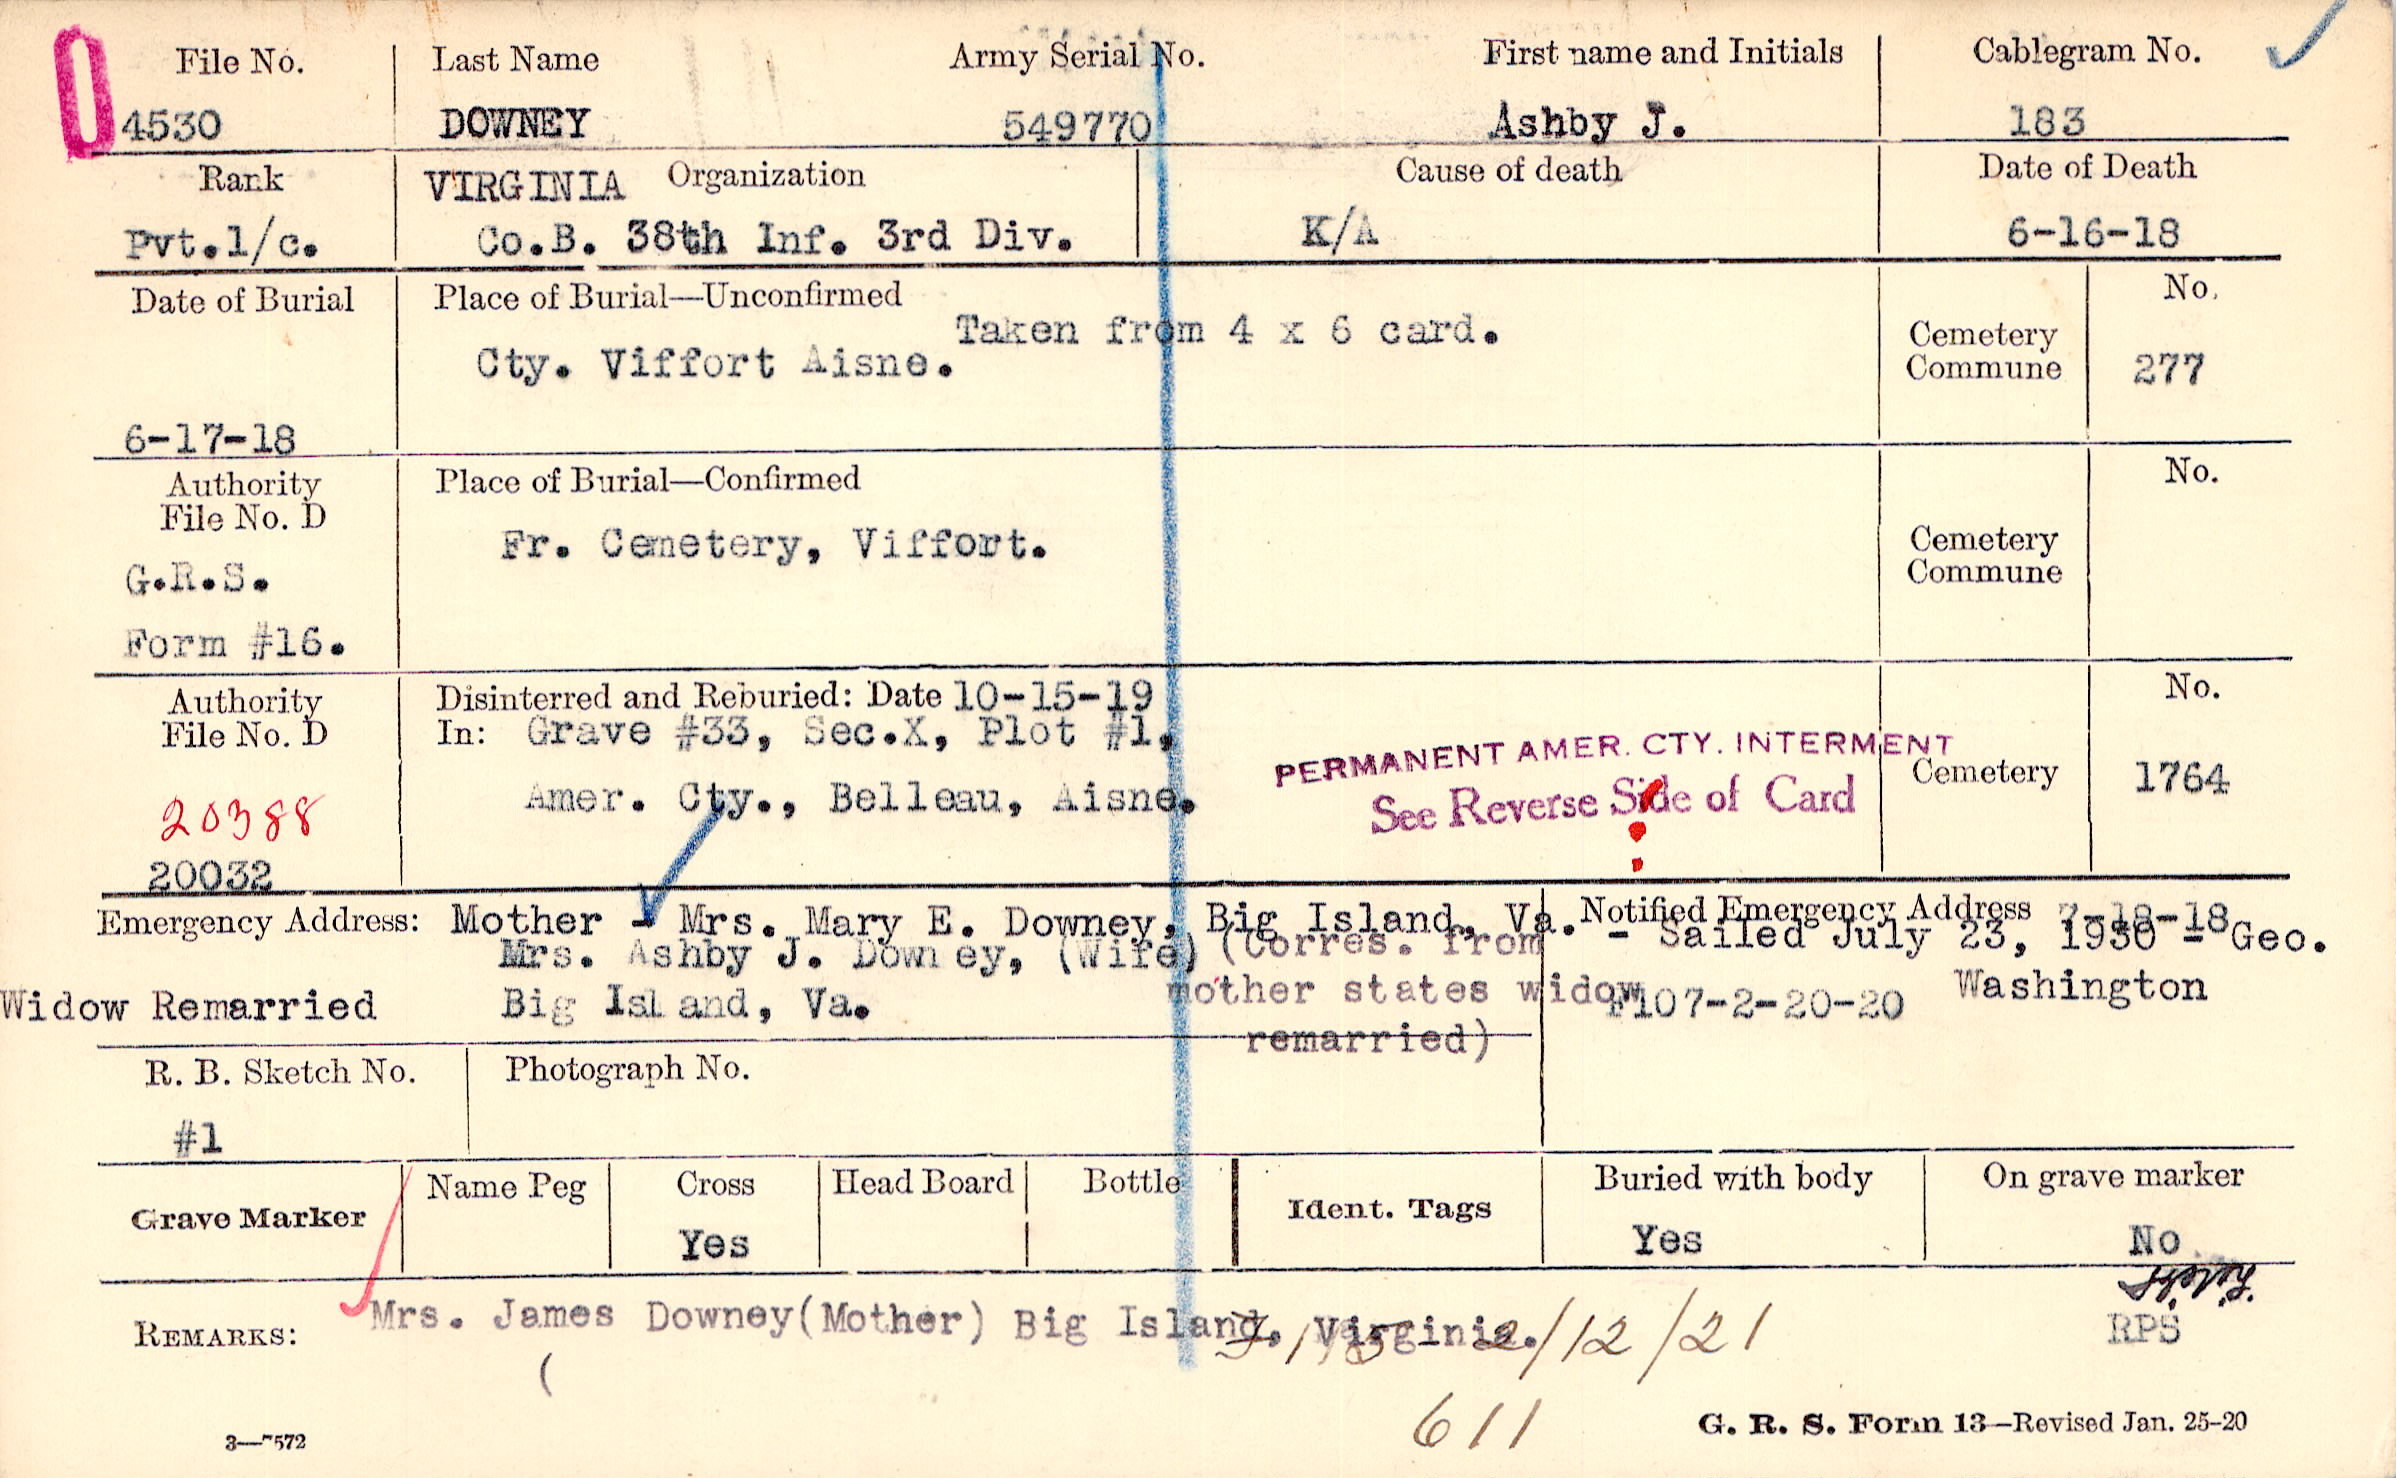 File No. Last Name Army Serial No. First name and Initials Cablegram No.
4530 DOWNEY 549770 Ashby J. 183
Rank VIRGINIA Organization Cause of death Date of Death
Pvt.1/c. Co.B. 38th Inf. 3rd Div. K/A 6-16-18
Date of Burial Place of Burial—Unconfirmed No.
Taken from 4 x 6 card.
Cty. Viffort Aisne. Cemetery Commune 277
6-17-18
Authority File No. D Place of Burial—Confirmed No.
Fr. Cemetery, Viffort. Cemetery Commune
G.R.S.
Form #16.
Authority File No. D Disinterred and Reburied: Date 10-15-19 No.
In: Grave #33, Sec.X, Plot #1,
PERMANENT AMER. CTY. INTERMENT
Amer. Cty., Belleau, Aisne. See Reverse Side of Card Cemetery 1764
20388
20032
Emergency Address: Mother - Mrs. Mary E. Downey, Big Island, Va. Notified Emergency Address 7-18-18
- Sailed July 23, 1930 - Geo.
Mrs. Ashby J. Downey, (Wife) (Corres. from
mother states widow Washington
Widow Remarried Big Island, Va. F107-2-20-20
remarried)
R. B. Sketch No. Photograph No.
#1
Grave Marker Name Peg Cross Head Board Bottle Ident. Tags Buried with body On grave marker
Yes Yes No
REMARKS: Mrs. James Downey(Mother) Big Island, Virginia. 2/12/21 RPS
(
611
3—7572 G. R. S. Form 13—Revised Jan. 25-20